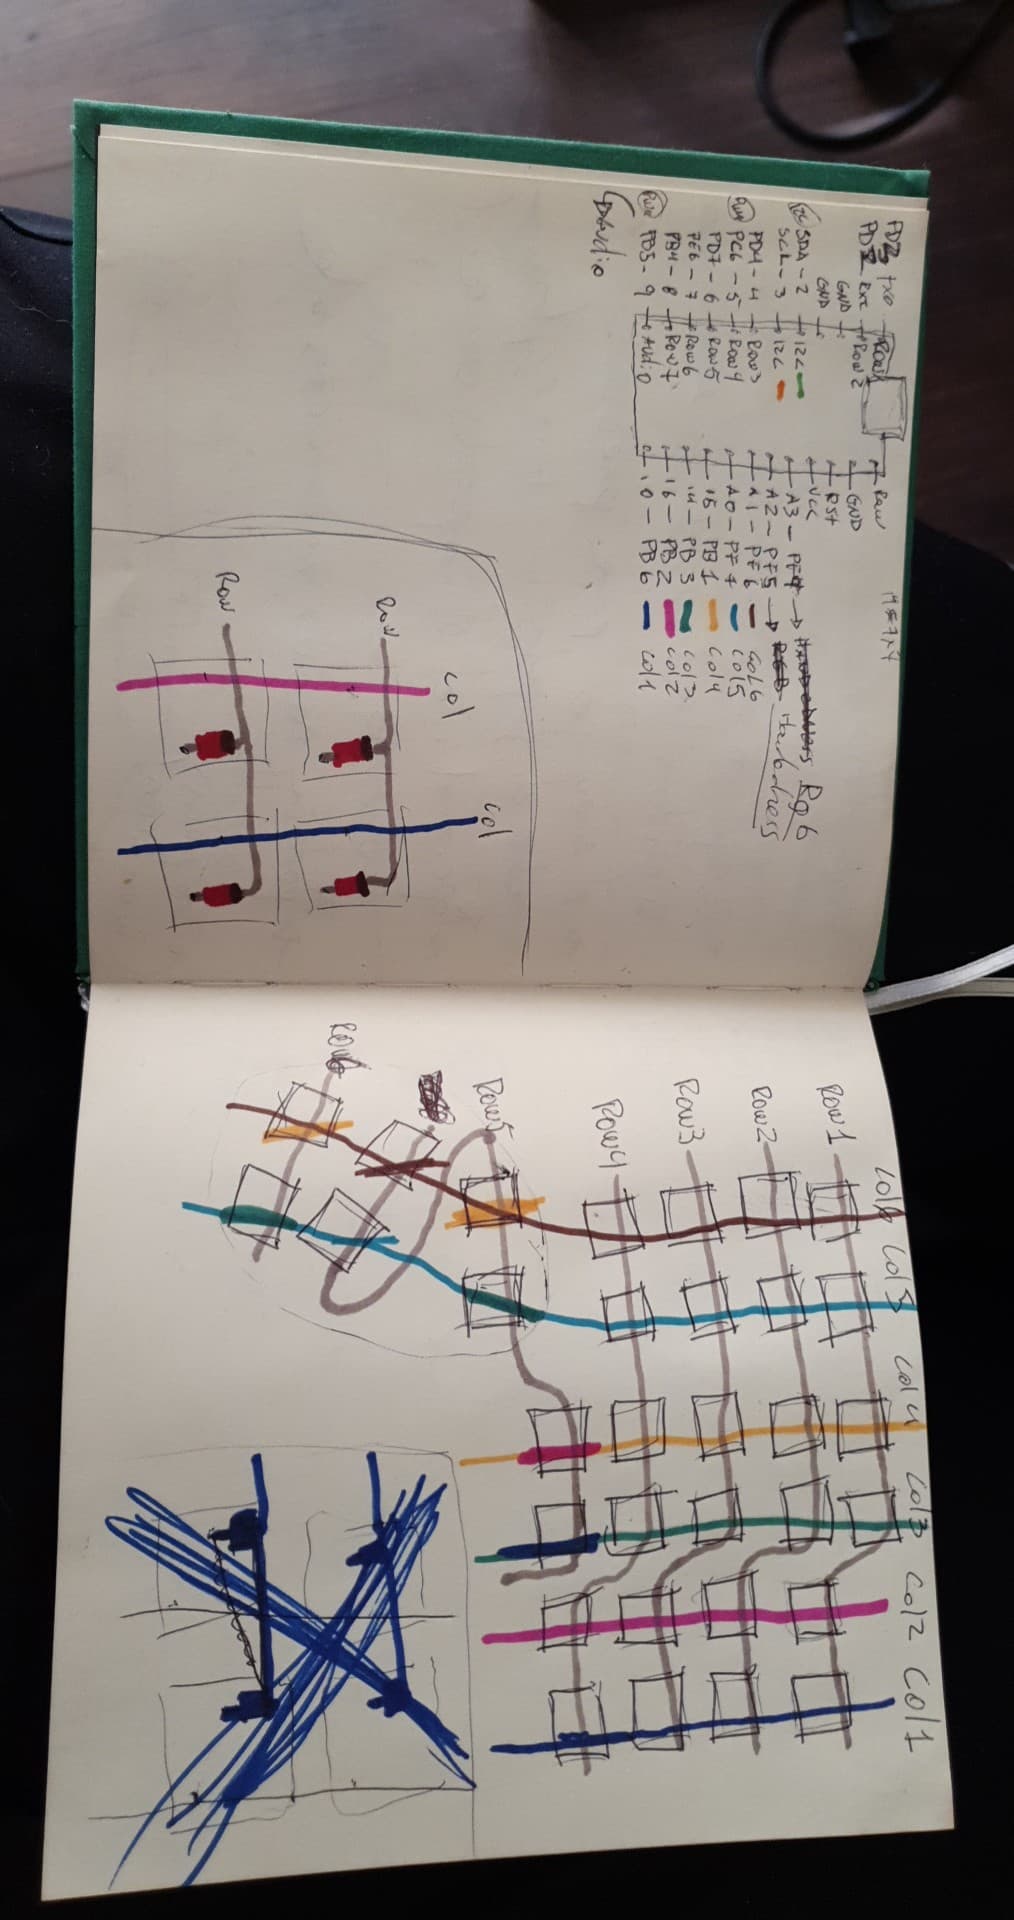 PD3 TX0 Row1
PD2 RX1 Row2
GND
GND
I2C SDA - 2 I2C
SCL - 3 I2C
PD4 - 4 Row3
PWM PC6 - 5 Row4
PD7 - 6 Row5
PE6 - 7 Row6
PB4 - 8 Row7
PWM PB5 - 9 Audio
Audio
Raw
GND
RSt
VCC
A3 - PF4 → RGB
A2 - PF5 → Handedness
A1 - PF6 Col6
A0 - PF7 Col5
15 - PB1 Col4
14 - PB3 Col3
16 - PB2 Col2
10 - PB6 Col1
col
col
Row
Row
Col6 Col5 Col4 Col3 Col2 Col1
Row1
Row2
Row3
Row4
Row5
Row6